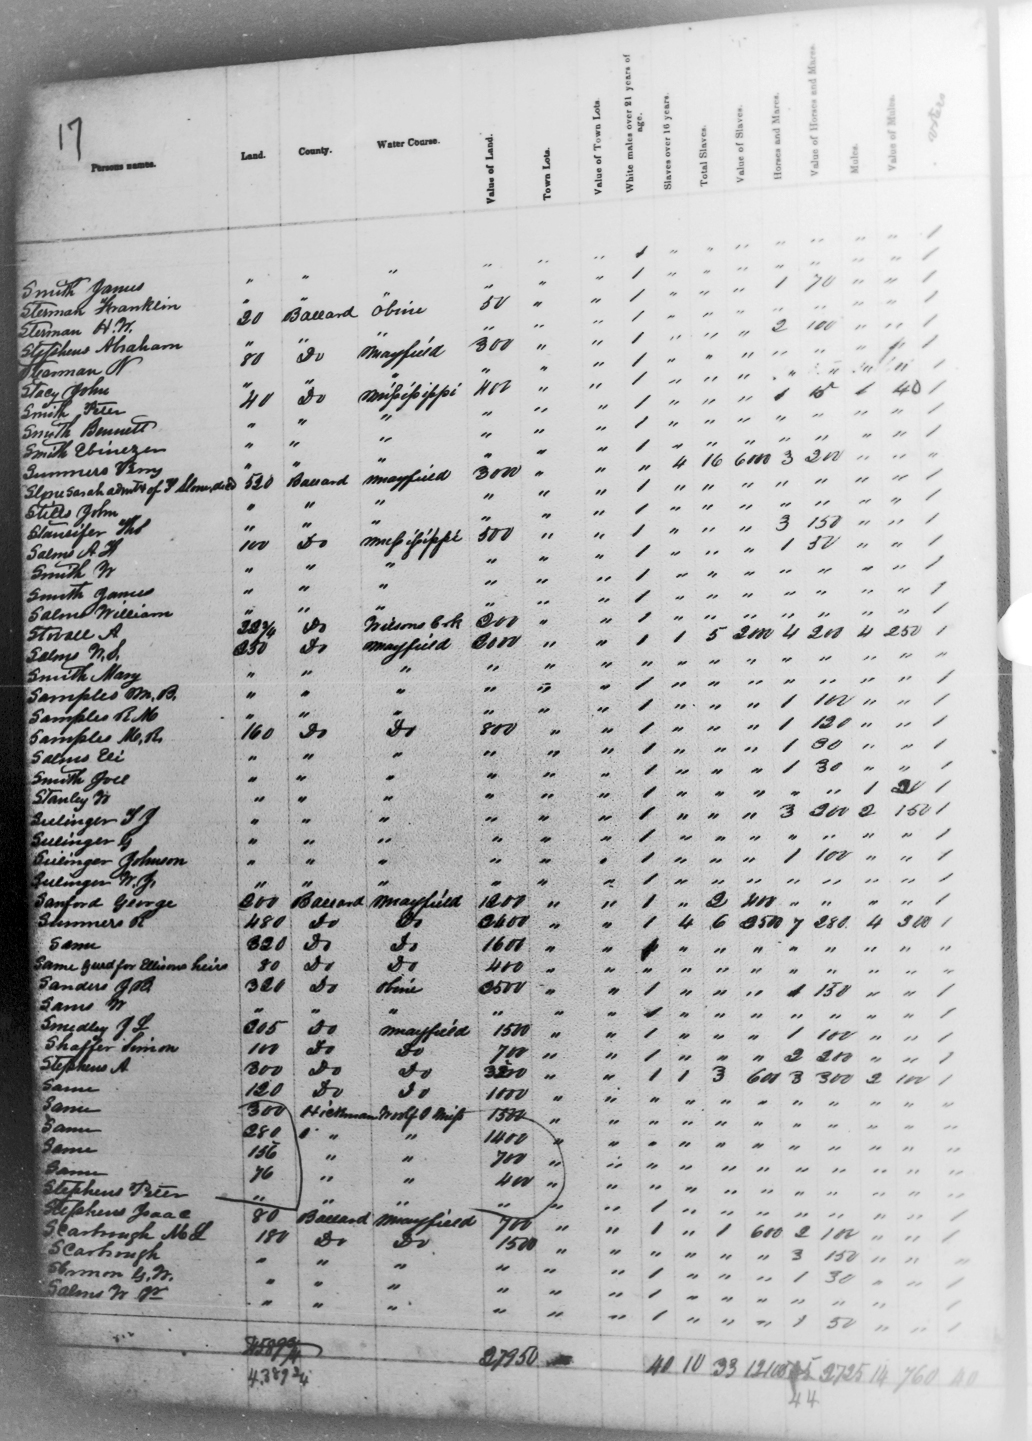 17
Persons names. Land. County. Water Course. Value of Land. Town Lots. Value of Town Lots. White males over 21 years of age. Slaves over 16 years. Total Slaves. Value of Slaves. Horses and Mares. Value of Horses and Mares. Mules. Value of Mules.
Smith James " " " " " " 1 " " " " " " " 1
Sterman Franklin " " " " " " 1 " " " 1 70 " " 1
Sterman H.W. 20 Ballard Obine 50 " " 1 " " " " " " " 1
Stephens Abraham " " " " " " 1 " " " 2 100 " " 1
N 80 Do Mayfield 300 " " 1 " " " " " " "
Stacy John " " " " " " 1 " " " " " " "
Smith Peter 40 Do Mississippi 400 " " 1 " " " 1 15 1 40 1
Smith Bennett " " " " " " 1 " " " " " " " 1
Smith Ebinezer " " " " " " 1 " " " " " " " 1
Summers " " " " " " 1 " " " " " " " 1
Slone Sarah admtx of 520 Ballard Mayfield 3000 " " " 4 16 6000 3 200 " " "
Stills John " " " " " " 1 " " " " " " " 1
Thos " " " " " " 1 " " " " " " " 1
Salms A 100 Do Mississippi 500 " " 1 " " " 3 150 " " 1
Smith W " " " " " " 1 " " " 1 50 " " 1
Smith James " " " " " " 1 " " " " " " " 1
Salms William " " " " " " 1 " " " " " " " 1
Stovall A 22¾ Do Wilsons Crk 200 " " 1 " " " " " " " 1
Salms N.S. 250 Do Mayfield 2000 " " 1 1 5 2000 4 200 4 250 1
Smith Mary " " " " " " " " " " " " " " "
Samples M.B. " " " " " " 1 " " " " " " " 1
Samples R M " " " " " " 1 " " " 1 100 " " 1
Samples M.R. 160 Do Do 800 " " 1 " " " 1 120 " " 1
Salms Eli " " " " " " 1 " " " 1 30 " " 1
Smith Joel " " " " " " 1 " " " 1 30 " " 1
Stanley W " " " " " " 1 " " " " " 1 20 1
Sulinger T J " " " " " " 1 " " " 3 200 2 150 1
Sulinger G " " " " " " 1 " " " " " " " 1
Sulinger Johnson " " " " " " 1 " " " 1 100 " " 1
Sulinger W.J. " " " " " " 1 " " " " " " " 1
Sanford George 200 Ballard Mayfield 1200 " " 1 " 2 400 " " " " 1
Summers R 480 Do Do 2400 " " 1 4 6 2500 7 280 4 300 1
Same 320 Do Do 1600 " " " " " " " " "
Same Gurd for Ellisons heirs 80 Do Do 400 " " " " " " " " " " "
Sanders J.B. 320 Do Obine 2500 " " 1 " " " 1 150 " " 1
Sams W " " " " " " 1 " " " " " " " 1
Smedley J L 205 Do Mayfield 1500 " " 1 " " " 1 100 " " 1
Shaffer Simon 100 Do Do 700 " " 1 " " " 2 200 " " 1
Stephens A 300 Do Do 3200 " " 1 1 3 600 3 300 2 100 1
Same 120 Do Do 1000 " " " " " " " " " " "
Same 300 Hickman Woolf O Miss 1500 " " " " " " " " " " "
Same 280 " " 1400 " " " " " " " " " " "
Same 156 " " 700 " " " " " " " " " " "
Same 76 " " 400 " " " " " " " " " " "
Stephens Peter " " " " " " 1 " " " " " " " 1
Stephens Isaac 80 Ballard Mayfield 700 " " 1 " 1 600 2 100 " " 1
Scarbrough M L 180 Do Do 1500 " " " " " " 3 150 " " "
Scarbrough " " " " " " 1 " " " 1 30 " " 1
G.W. " " " " " " 1 " " " " " " " 1
Salms W Jr " " " " " " 1 " " " 1 50 " " 1
27950 40 10 33 12100 2725 14 760 40
4389¾ 44